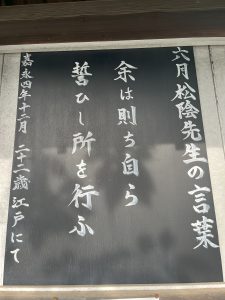 六月松陰先生の言葉
余は則ち自ら
誓ひし所を行ふ
嘉永四年十二月 二十二歳 江戸にて